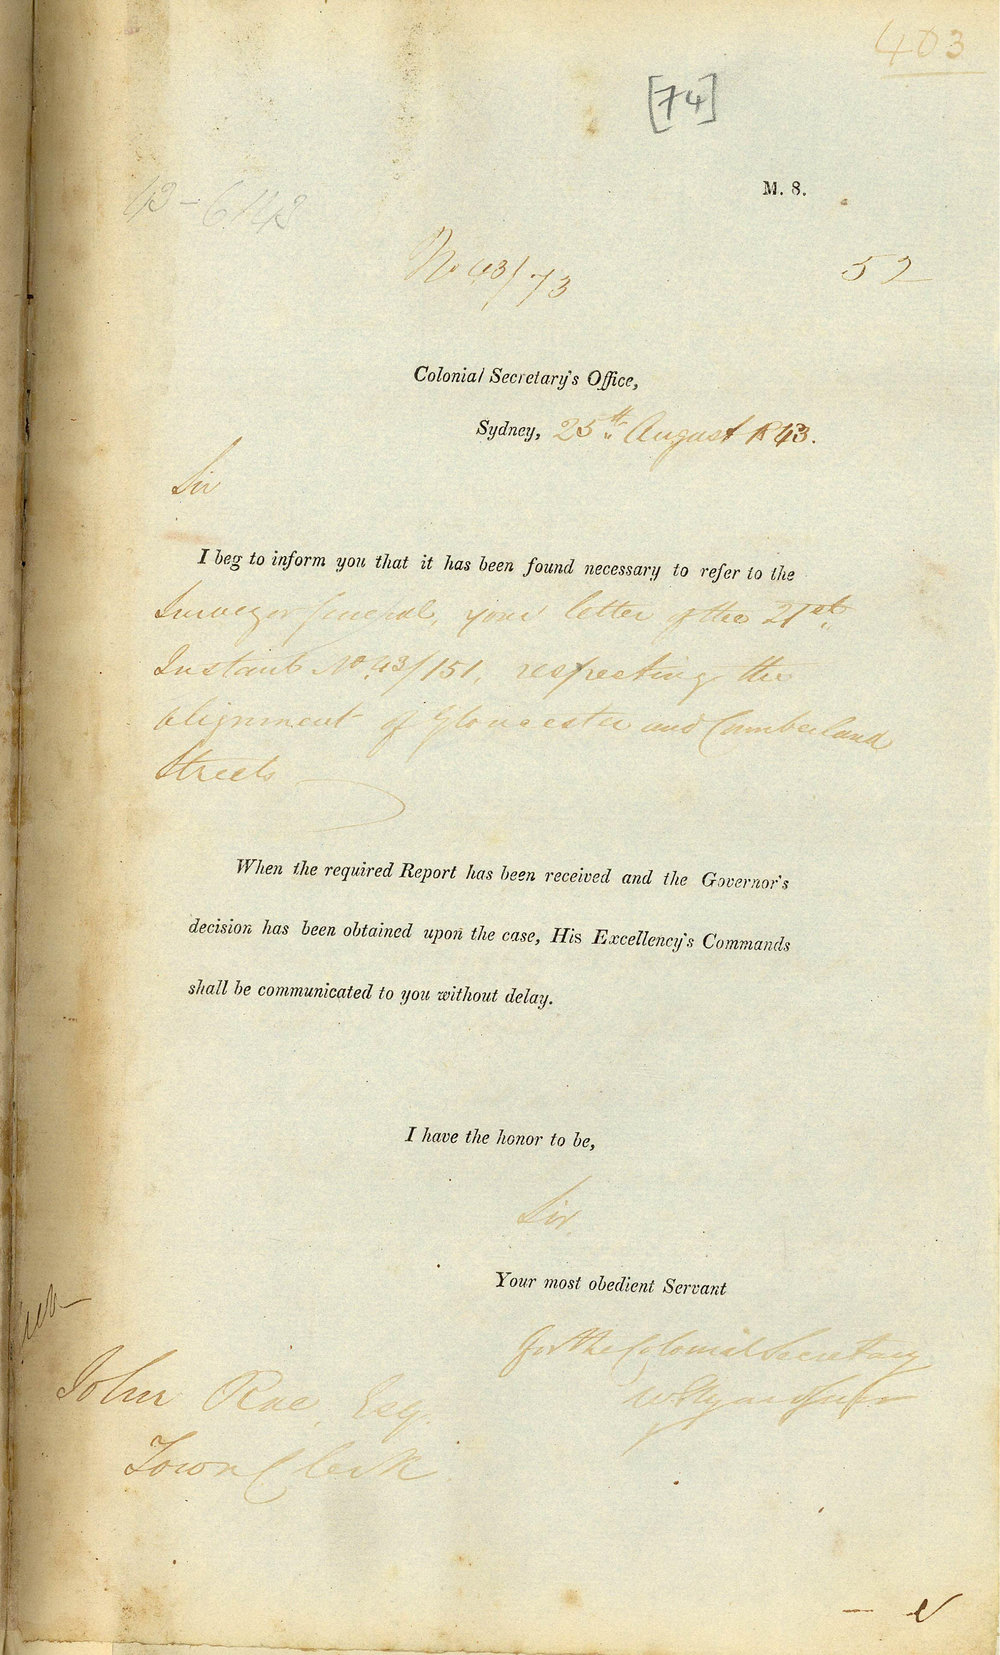 403
[74]
M. 8.
43-6148
No 43/73
52
Colonial Secretary's Office,
Sydney, 25th August 1843.
Sir
I beg to inform you that it has been found necessary to refer to the
Surveyor General, your letter of the 21st
Instant No. 43/151, respecting the
Alignment of Gloucester and Cumberland
Streets
When the required Report has been received and the Governor's
decision has been obtained upon the case, His Excellency's Commands
shall be communicated to you without delay.
I have the honor to be,
Sir,
Your most obedient Servant
for the Colonial Secretary
John Rae, Esq.
Town Clerk